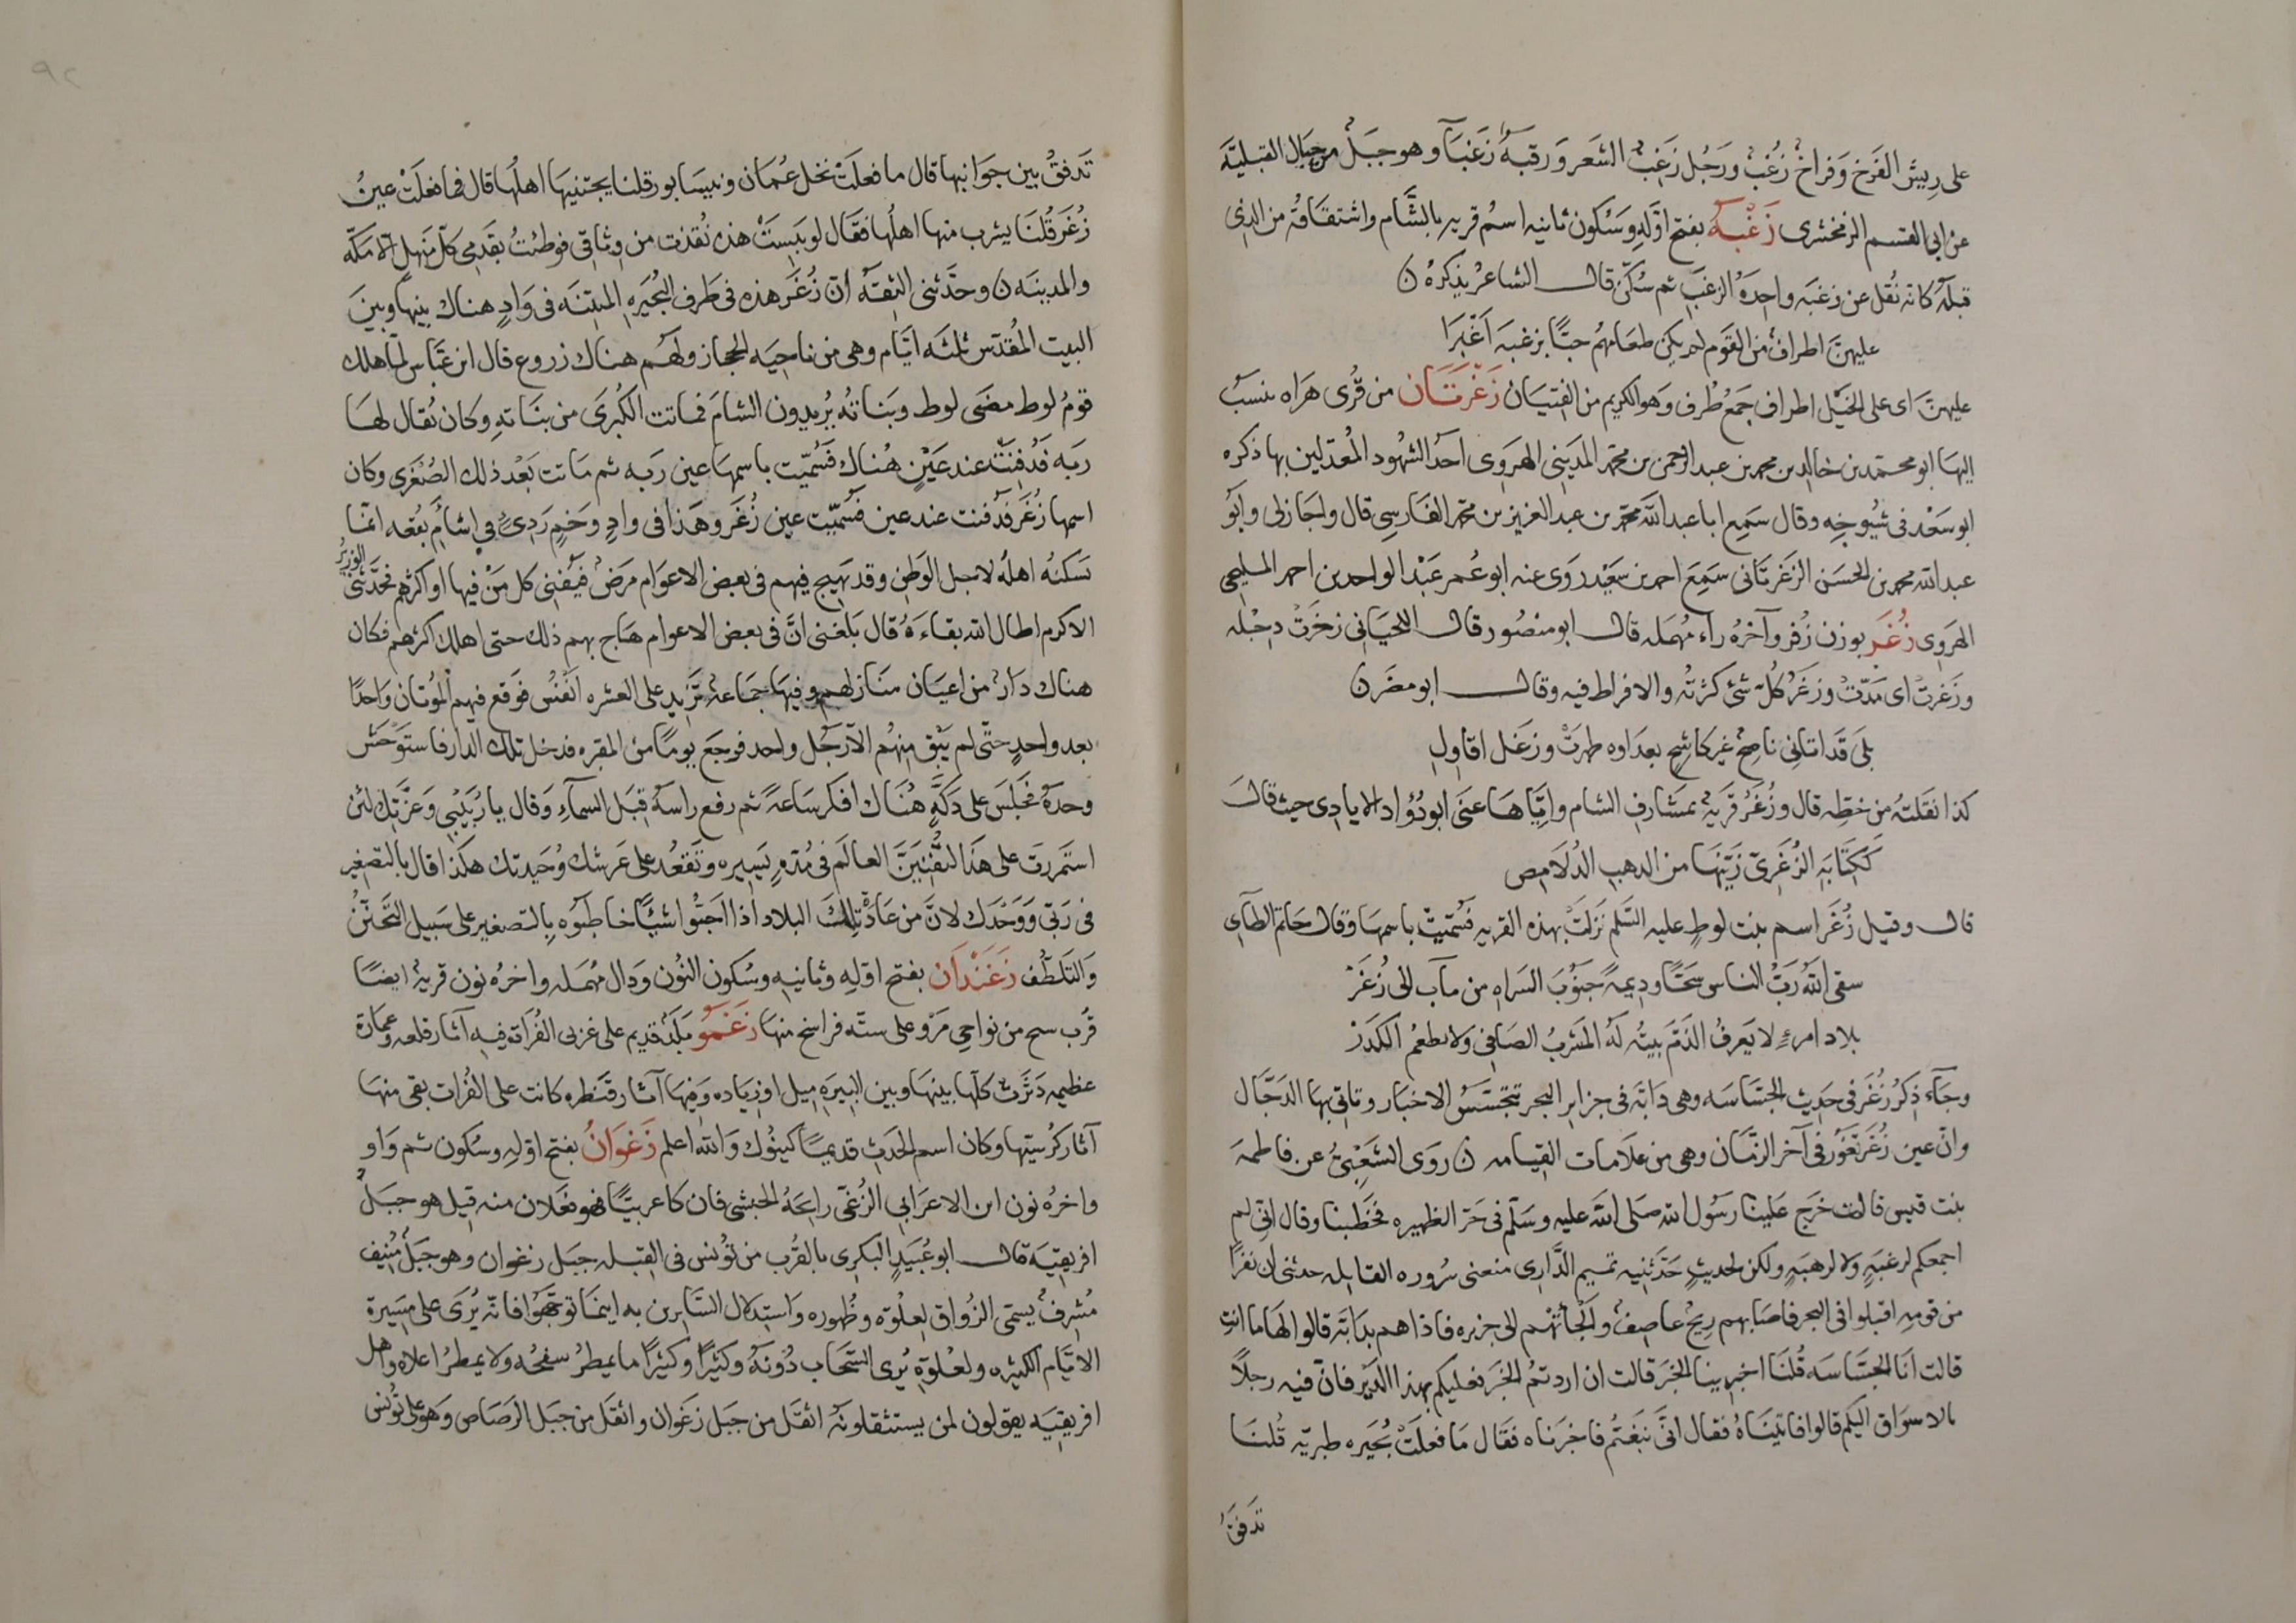 على ريش الفَرخ وَفراخٌ زُغْبٌ ورَجُل زَغِبُ الشَعر وَرقبةٌ زَغبَآ وهو جبَلٌ من جبَال القبليّه
عن ابى القسم الزمخشرى زَغْبَهُ بفتح اوَّلِهِ وسُكون ثانيه اسمُ قريه بالشَّام واشتقاقُهُ من الذى
قبلهُ كانه نُقل عن زغبَه واحِدَهُ الزغبَ ثم سُكّن قال الشاعرُ يذكرهُ ن
عليهنَّ اطرافٌ من القَوم لم يكن طعَامهُم حبًّا بزغبَه اَغْبَرَا
عليهنَّ اى على الخيَل اطراف جَمعُ طُرف وَهو الكريم من الفتيَان زَغْرَتَان من قُرى هَراه ينسبُ
اليهَا ابو محمّد بن خالد بن محمد بن عبد الرحمن بن محمّد المدَينى الهروَى احدُ الشهُود المعُدّلين بها ذكره
ابو سَعْد فى شيُوخِه وقال سَمِع ابا عبد الله محمّد بن عبد العزيز بن محمّد الفَارسِى قال واجَازلى وابُو
عبد الله محمد بن الحسَن الزغرتَانى سَمِعَ احمد بن سَعيْد روَى عنه ابو عُمر عَبْد الواحد بن احمد المليحى
الهَروِى زُغَر بوزن زُفر وآخرُهُ رآء مُهمَله قال ابو منصُور قال اللحيَانى زخَرَتْ دجْله
وزَغرتْ اى مَدّتْ وزغَرُ كُلِّ شئ كثرتُه والافراط فيه وقال ابو مضَر ن
بلَى قَد اتانِى ناصحٌ غير كاشحٍ بعدَاوه ظهرَتْ وزغَل اقاولِ
كذا نقَلتُه من خطّه قال وزُغَرُ قَريةٌ بمَشَارف الشام وايّاهَا عنَى ابو دُوُاد الايادِى حيث قالَ
كَكِتَابَهِ الزُغَرِىّ زيّنهَا من الذهبِ الدُلَامِص
قال وقيل زُغَر اسم بنت لوطٍ عليه السَلم نَزلَتْ بهذه القريه فَسُمّيتْ باسمهَا وَقال حَاتم الطآى
سقى اللهُ رَبُّ الناس سَحًّا ودِيمةً جنُوبَ السَراه من مآب الى زُغَرْ
بلاد امرءٍ لا يَعرفُ الذمَّ بيتُه لَهُ المَشربُ الصَافى ولا يطعمُ الكدَرْ
وجَآء ذِكرُ زُغَر فى حَديث الجسَّاسَه وهى دَابّه فى جزاير البحر تتجسَّسُ الاخبَار وتاتى بها الدَجَّال
وانّ عين زُغَر تَغَوُر فى آخر الزمَان وهى من علَامات القِيامه ن روَى الشَعْبِىُّ عن فاطمهَ
بنت قيس قالت خرَج علينَا رَسُول الله صَلى اللهَ عليه وسَلّم فى حَرّ الظهيره فخَطبنا وقال انّى لم
اجمعكم لرغبَهٍ ولا لرهبَهٍ ولكن لحديثٍ حَدّثنيه تميم الدَّارِى منعنى سُروره القايله حدثنى ان نفرًا
من قومِه اقبلوا فى البحر فاصَابهم ريحٌ عاصِفٌ والجأتهُم الى جزيره فاذا هم بدَابّه قالوا لهَا ما انتِ
قالت انَا الجسَّاسَه قُلنَا اخبِرينا الخبَر قالت ان اردتمُ الخبَر فعليكم بهذا الدَير فانّ فيه رجلًا
بالاسوَاق اليكم قالوا فاتينَاهُ فقال انَّى نبَغتُم فاخبَرناه فقَال مَا فعلَتْ بُحَيَره طبريّه قُلنَا
تدَفقُ
تَدفقُ بين جوَانبها قال ما فعلَتْ نخل عُمَان وبيسَا بور قلنا يجتنيهَا اهلُهَا قال فما فعلَتْ عينُ
زُغَر قُلنَا يشرب منها اهلُها فقَال لو يَبِستْ هذه نُفذت من وثاقى فوطئتُ بقَدمىِ كلّ مَنهلٍ الا مكّه
والمدينَه ن وحدَّثنى الثِقَهُ انّ زُغَر هذه فى طَرف البُحَيره المنتنَه فى وَادٍ هناك بينها وبينَ
البيت المُقدّس ثلثَه ايَّام وهى من ناحيَه الحجاز ولهُم هنَاك زروع قال ابن عَبّاس لمّا هلك
قومُ لوط مضَى لوط وبَناتُه يُريدون الشامَ فماتت الكبُرىَ من بنَاتهِ وكان يُقال لهَا
ربَه فَدُفنَتْ عند عيَنٍ هُناك فَسُمّيت باسمهَا عين ربَه ثم مَاتت بَعْد ذلك الصُغْرَى وكان
اسمها زُغَر فدُفنت عند عين فسُمّيت عين زُغَر وهَذا فى وادٍ وَخمٍ رَدِىٍّ فى اشأَمِ بُقعَه انمّا
تسكنُه اهلُه لاجل الوَطن وقد يَهيج فيهم فى بعض الاعوَام مرَضٌ فيُفنى كل مَنْ فيها او اكثرهُم فحدَّثنى الوَزيرُ
الاكرم اطال الله بقاءَهُ قال بَلغنى انَّ فى بعض الاعوام هَاج بهم ذلك حتى اهلك اكثرهم فكان
هناك دَارٌ من اعيَان منَازلهم وفيهَا جمَاعهُ تَزيد على العشره انفُس فوَقع فيهم المُوتان وَاحدًا
بعد واحدٍ حتّى لم يَبْق منهُم الّا رَجُل واحد فرجَع يومًا من المقبَره فدخل تلك الدار فاستوَحَش
وحدَهُ فجلَس على دكّةٍ هُنَاك افكر سَاعةً ثم رفع راسَهُ قِبَل السمآءِ وَقال يا رُبَيبِى وَعزّتِك لئن
استَمررت على هَذا لتُفنِيَنَّ العالَم فى مُدّهٍ يَسِيره وتَقعُد على عَرشك وُحَيدتك هكَذا قال بالتصغير
فى رَبّى وَوَحْدَك لانَّ من عادَه تلكَ البلاد اذا احَبُّوا شيئًا خاطَبُوه بالتصغير على سَبيل التحنُّنْ
وَالتلَطُّف زَغَنْدَان بفتح اوّلِه وثانيه وسُكون النوُن وَدال مُهمَله واخرُه نون قريةٌ ايضًا
قُرب سح من نواحِى مَرْو على ستّه فراسخ منهَا زَغَمُو بَلدٌ قديم على غربى الفُرات فيه آثار قلعه وعمَارة
عظيمه دَثَرَتْ كلُها بينهَا وبين البيَرَه مِيل او زيَاده وَفِيهَا آثار قَنَطره كانت على الفُرات بقى منهَا
آثار كرُسيّها وكان اسم الحَدث قديمًا كينُوك وَالله اعلم زَغوَانُ بفتح اوّلِهِ وسُكون ثم وَاو
واخرُه نون ابن الاعرَابِى الزُغىّ رايحَهُ الحبشِى فان كا عربيًّا فهو فعَلَان منه قيل هو جبَلٌ
افريقِيَه قال ابو عُبَيدٍ البكرِى بالقُرب من تُونس فى القِبله جبَل زغوان وهو جبَل مُنيف
مُشرفٌ يسمّى الزُواق لعلُوّه وظُهوره وَاستِدلال السَّايرين به اينمَا توجّهَوُا فانّه يُرَى على مسَيرة
الايّام الكثيره ولعُلوّهِ يُرى السّحَاب دُونَهُ وكثيرًا وكثيرًا ما يمطرُ سفحُه ولا يمطرُ اعلاه واهل
افريقِيَه يقولون لمن يستثقلونَهُ اثقَل من جبَل زغَوان واثقَل من جبَل الرصَاص وَهو على تُونس
٩٢